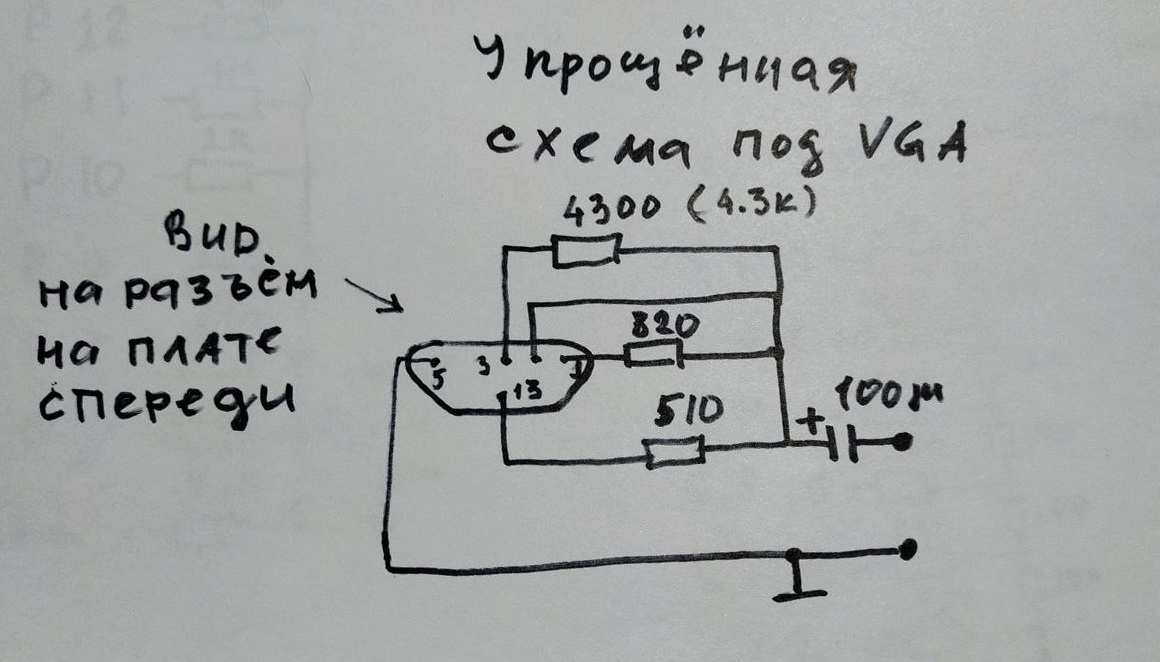 Упрощённая
схема под VGA
4300 (4.3к)
Вид
на разъём
на плате
спереди
820
5
3
1
13
510
+
100м